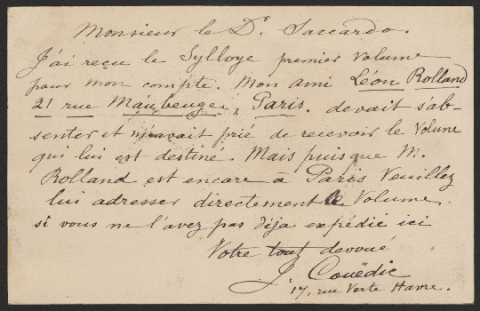 Monsieur le Dr. Saccardo.
J'ai reçu le Sylloge premier volume
pour mon compte. Mon ami Léon Rolland
21 rue Maubeuge, Paris. devait s'ab-
senter et m'avait prié de recevoir le Volume
qui lui est destiné. Mais puisque M.
Rolland est encore à Paris Veuillez
lui adresser directement le Volume.
si vous ne l'avez pas déja expédié ici
Votre tout devoué
J. Couëdic
17, rue Verte Havre.